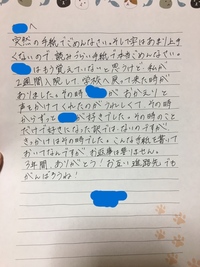 へ
突然の手紙でごめんなさい。そして字はあまり上手
くないので読みづらい手紙で本当ごめんなさい。
はもう覚えていないと思うけど、私が
2週間入院して、学校へ戻って来た時が
ありました。その時 が「おかえり!」と
声をかけてくれたのがうれしくて、その時
からずっと が好きでした。その時のこと
だけで好きになった訳ではないのですが、
きっかけはその時でした。こんな手紙を書いて
おいてなんですが、お返事は要りません。
3年間、ありがとう!お互い進路先でも
がんばろうね!